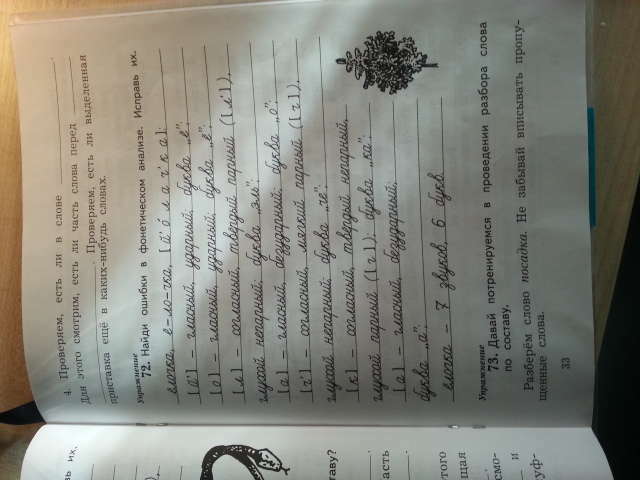 4. Проверяем, есть ли в слове
Для этого смотрим, есть ли часть слова перед
. Проверяем, есть ли выделенная
приставка ещё в каких-нибудь словах.
Упражнение
72. Найди ошибки в фонетическом анализе. Исправь их.
ёлочка, ё-ло-чка, [й' о́ л а ч' к а]:
[й'] – гласный, ударный; буква „ё";
[о] – гласный, ударный; буква „ё";
[л] – согласный, твёрдый парный ([л']),
глухой непарный; буква „эль";
[а] – гласный, безударный; буква „о";
[ч'] – согласный, мягкий парный ([ч]),
глухой непарный; буква „че";
[к] – согласный, твёрдый непарный,
глухой парный ([г]); буква „ка";
[а] – гласный, безударный;
буква „а";
ёлочка – 7 звуков, 6 букв.
Упражнение
73. Давай потренируемся в проведении разбора слова
по составу.
Разберём слово посадка. Не забывай вписывать пропу-
щенные слова.
33
их.
таву?
асть
этого
щая
смо-
и
уф-